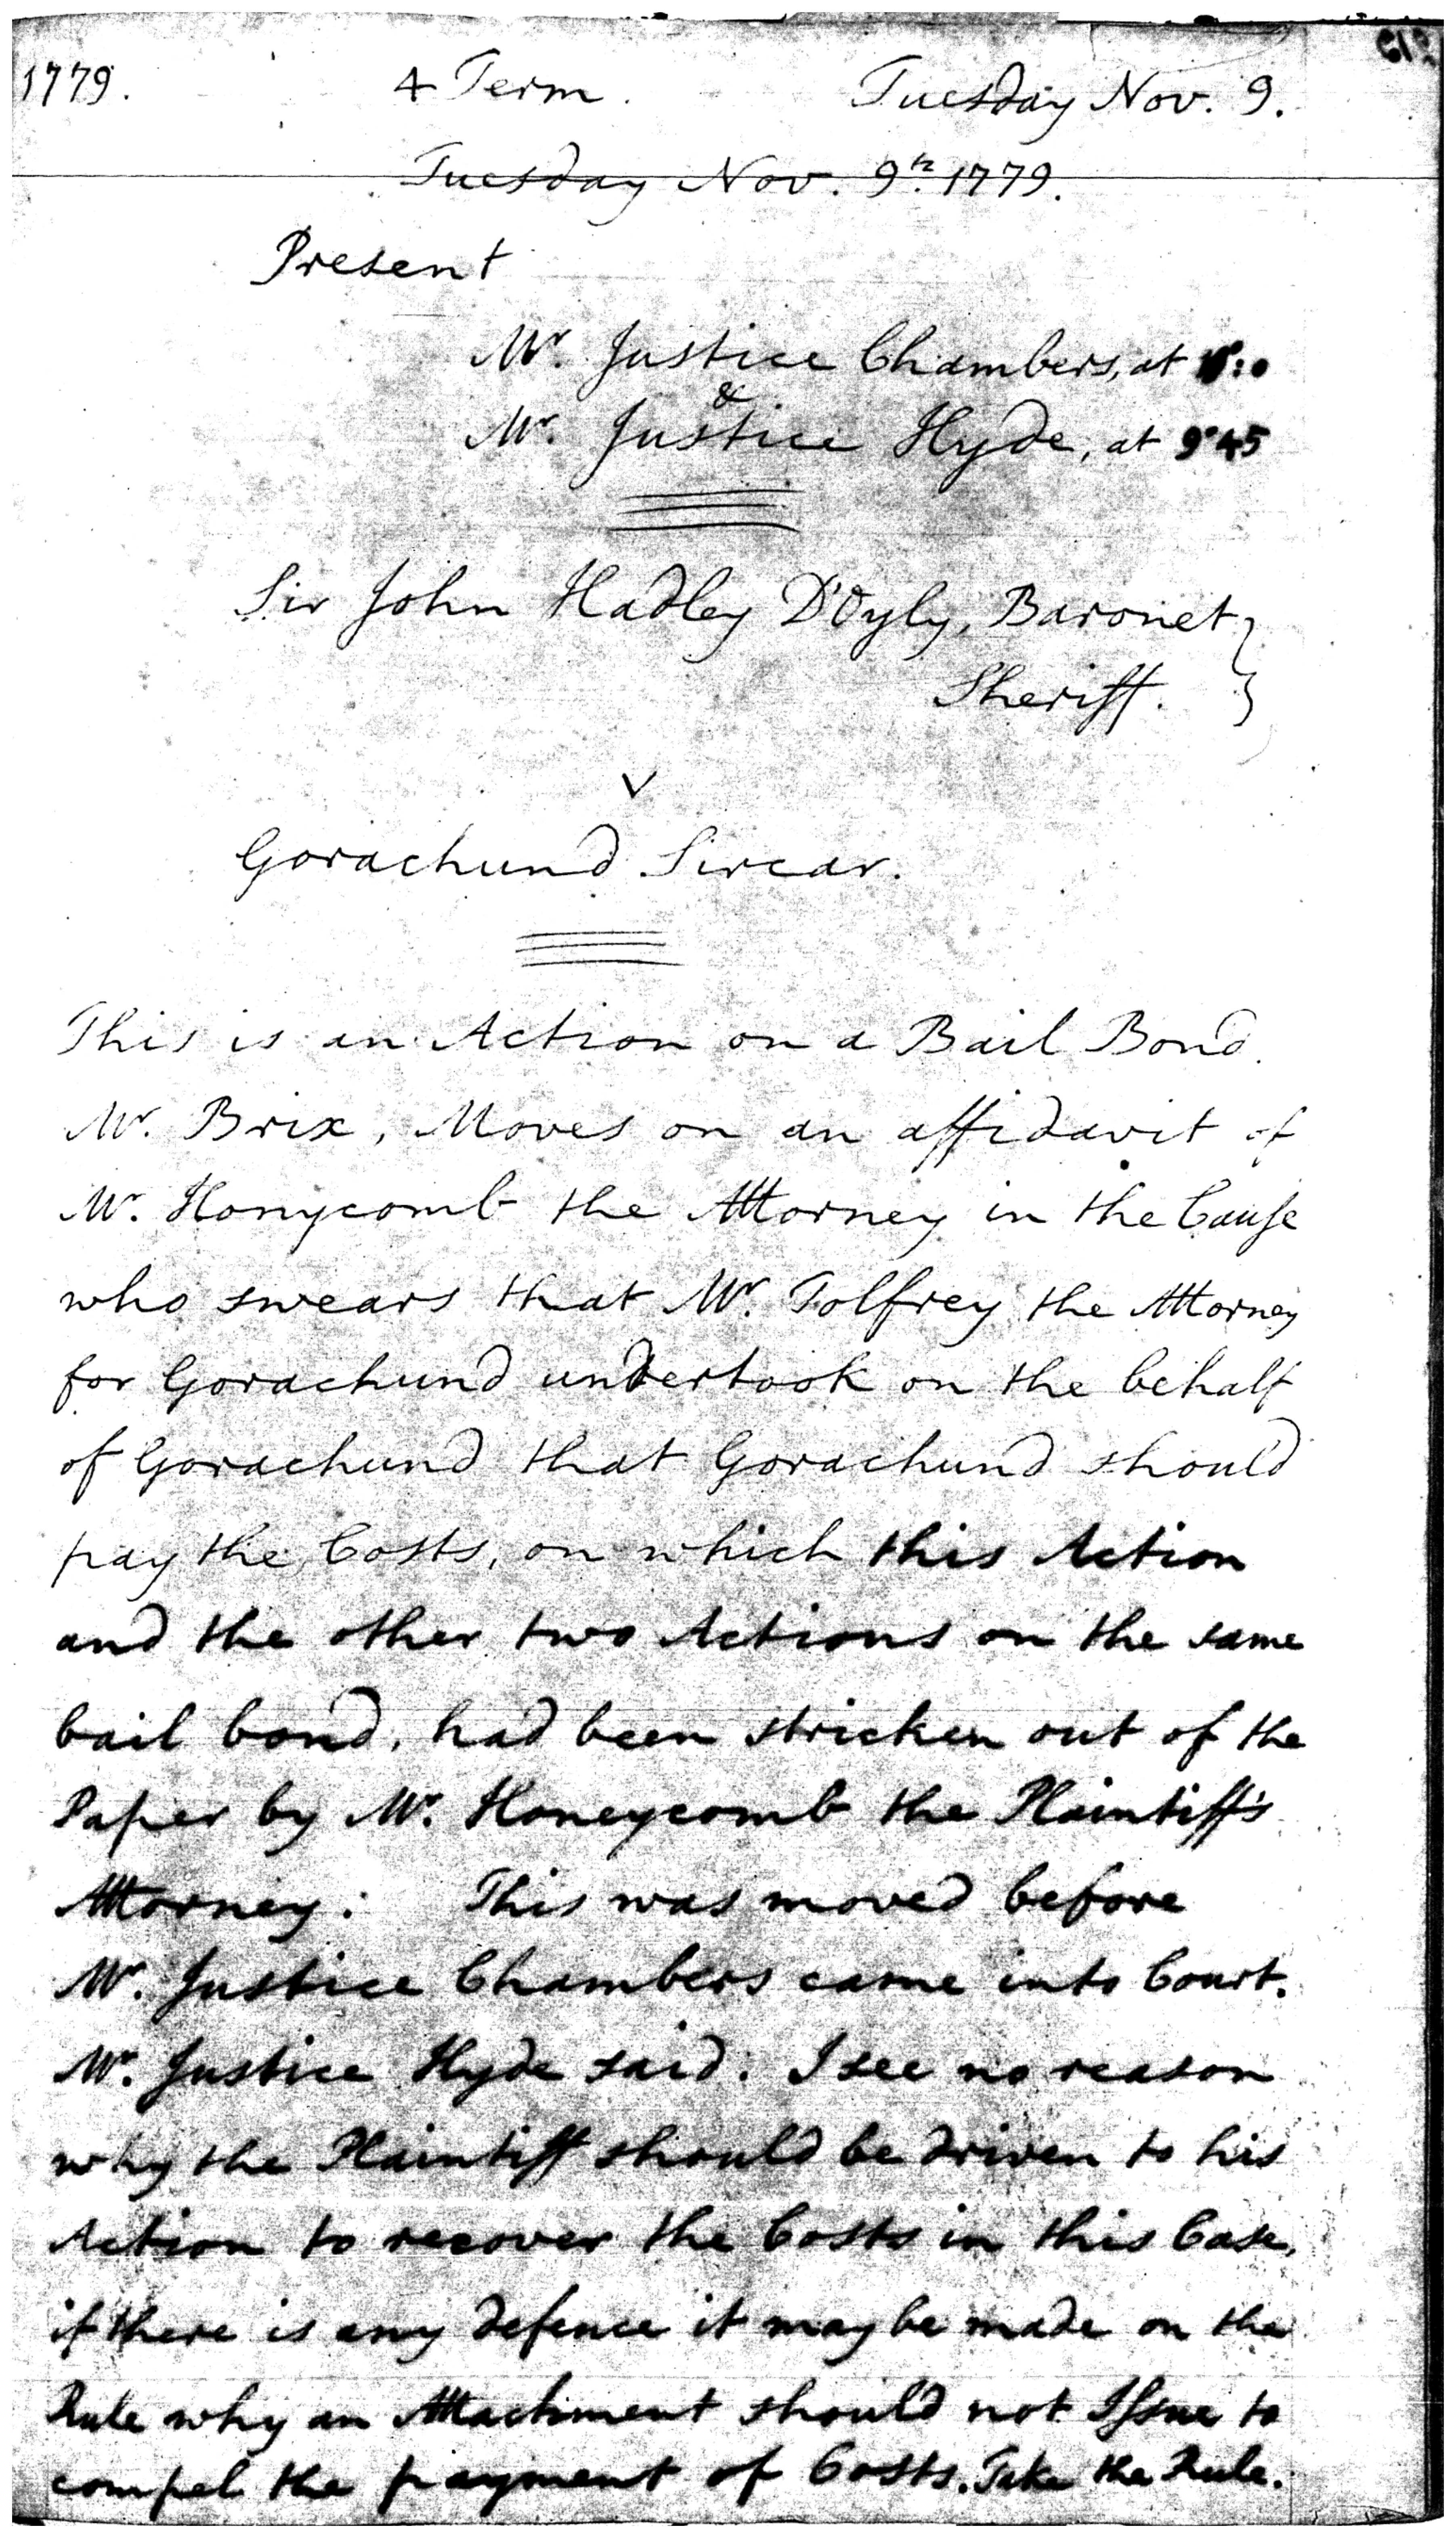 1779. 4 Term. Tuesday Nov. 9.
Tuesday Nov. 9th. 1779.
Present
Mr. Justice Chambers, at
&
Mr. Justice Hyde, at 9:45
Sir John Hadley D'Oyly, Baronet }
Sheriff. }
v
Gorachund Sircar.
This is an Action on a Bail Bond.
Mr. Brix, Moves on an affidavit of
Mr. Honycomb the Attorney in the Cause
who swears that Mr. Tolfrey the Attorney
for Gorachund undertook on the behalf
of Gorachund that Gorachund should
pay the Costs, on which this Action
and the other two Actions on the same
bail bond, had been stricken out of the
Paper by Mr. Honeycomb the Plaintiff's
Attorney: This was moved before
Mr. Justice Chambers came into Court.
Mr. Justice Hyde said: I see no reason
why the Plaintiff should be driven to his
Action to recover the Costs in this Case,
if there is any defence it may be made on the
Rule why an Attachment should not Issue to
compel the payment of Costs. Take the Rule.